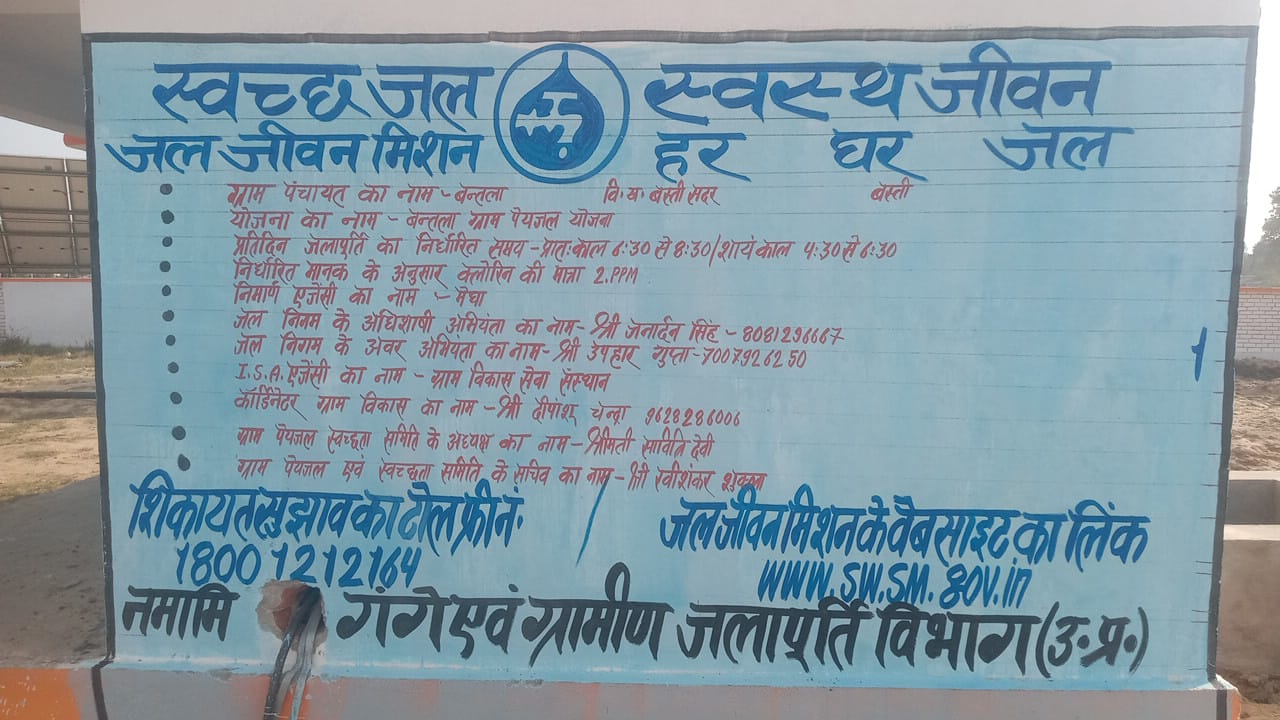 स्वच्छ जल स्वस्थ जीवन
जल जीवन मिशन हर घर जल
ग्राम पंचायत का नाम - बन्तला वि.ख. बस्ती सदर बस्ती
योजना का नाम - बन्तला ग्राम पेयजल योजना
प्रतिदिन जलापूर्ति का निर्धारित समय - प्रातःकाल 6:30 से 8:30/शायंकाल 4:30 से 6:30
निर्धारित मानक के अनुसार क्लोरिन की मात्रा 2.PPM
निमार्ण एजेंसी का नाम :- मेघा
जल निगम के अधिशाषी अभियंता का नाम - श्री जनार्दन सिंह - 8081296667
जल निगम के अवर अभियंता का नाम - श्री उपहार गुप्ता - 7007926250
I.S.A. एजेंसी का नाम - ग्राम विकास सेवा संस्थान
कॉर्डिनेटर ग्राम विकास का नाम - श्री दीपांशू चन्द्रा 9628286006
ग्राम पेयजल स्वच्छता समिति के अध्यक्ष का नाम - श्रीमती सावित्रि देवी
ग्राम पेयजल एवं स्वच्छता समिति के सचिव का नाम - श्री रवीशंकर शुक्ला
शिकायत सुझाव का टोल फ्री नं. जल जीवन मिशन के वैबसाइट का लिंक
1800 1212164 www.sw.sm.gov.in
नमामि गंगे एवं ग्रामीण जलापूर्ति विभाग (उ.प्र.)